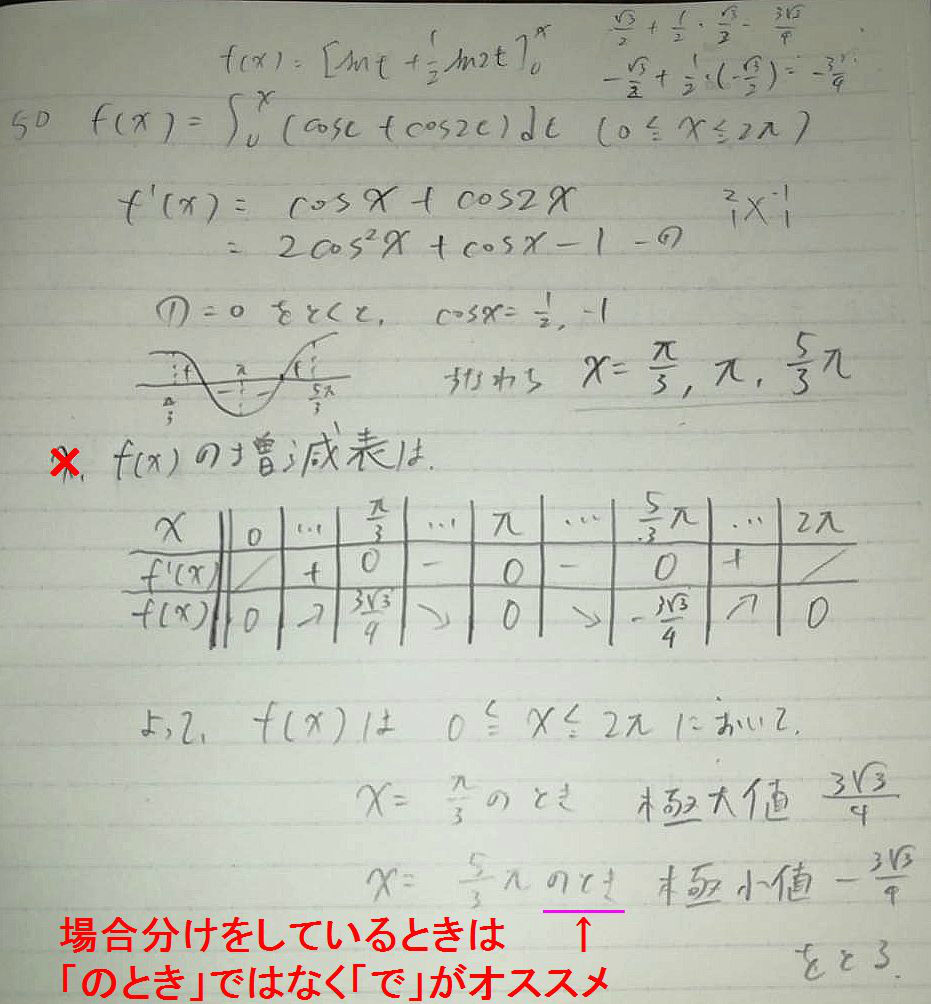 f(x) = [sint + 1/2 sin2t]₀ˣ
√3/2 + 1/2・√3/2 = 3√3/4
-√3/2 + 1/2・(-√3/2) = -3√3/4
50 f(x) = ∫₀ˣ (cost + cos2t)dt (0 ≦ x ≦ 2π)
f'(x) = cosx + cos2x
2 1 × -1 1
= 2cos²x + cosx - 1 - ①
① = 0 をとくと、 cosx = 1/2, -1
π/3 + π - - + 5π/3
すなわち x = π/3, π, 5/3 π
× f(x) の増減表は、
x 0 … π/3 … π … 5/3 π … 2π
f'(x) ／ + 0 - 0 - 0 + ／
f(x) 0 ↗ 3√3/4 ↘ 0 ↘ -3√3/4 ↗ 0
よって、 f(x) は 0 ≦ x ≦ 2π において、
x = π/3 のとき 極大値 3√3/4
x = 5/3 π のとき 極小値 -3√3/4
場合分けをしているときは ↑
「のとき」ではなく「で」がオススメ
をとる。